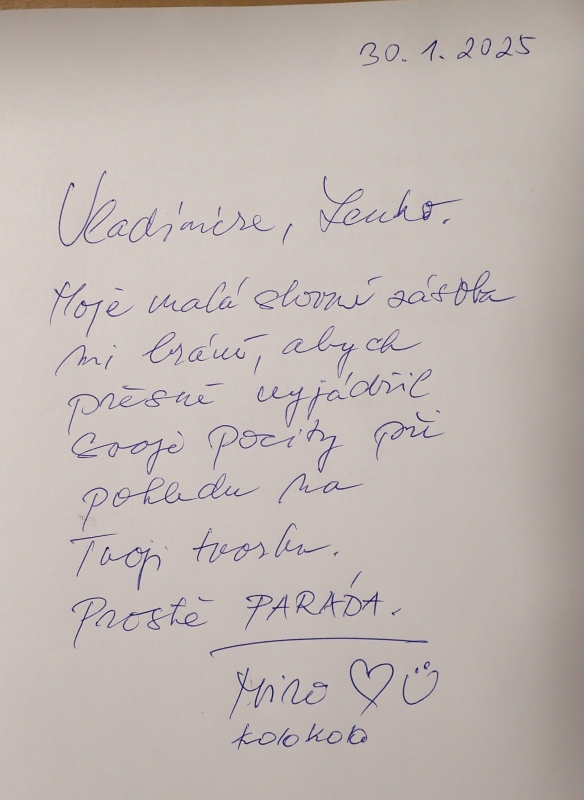 30. 1. 2025
Vladimíre, Lenko.
Moje malá slovní zásoba
mi brání, abych
přesně vyjádřil
svoje pocity při
pohledu na
Tvoji tvorbu.
Prostě PARÁDA.
Miro ♡ ü
kolokolo